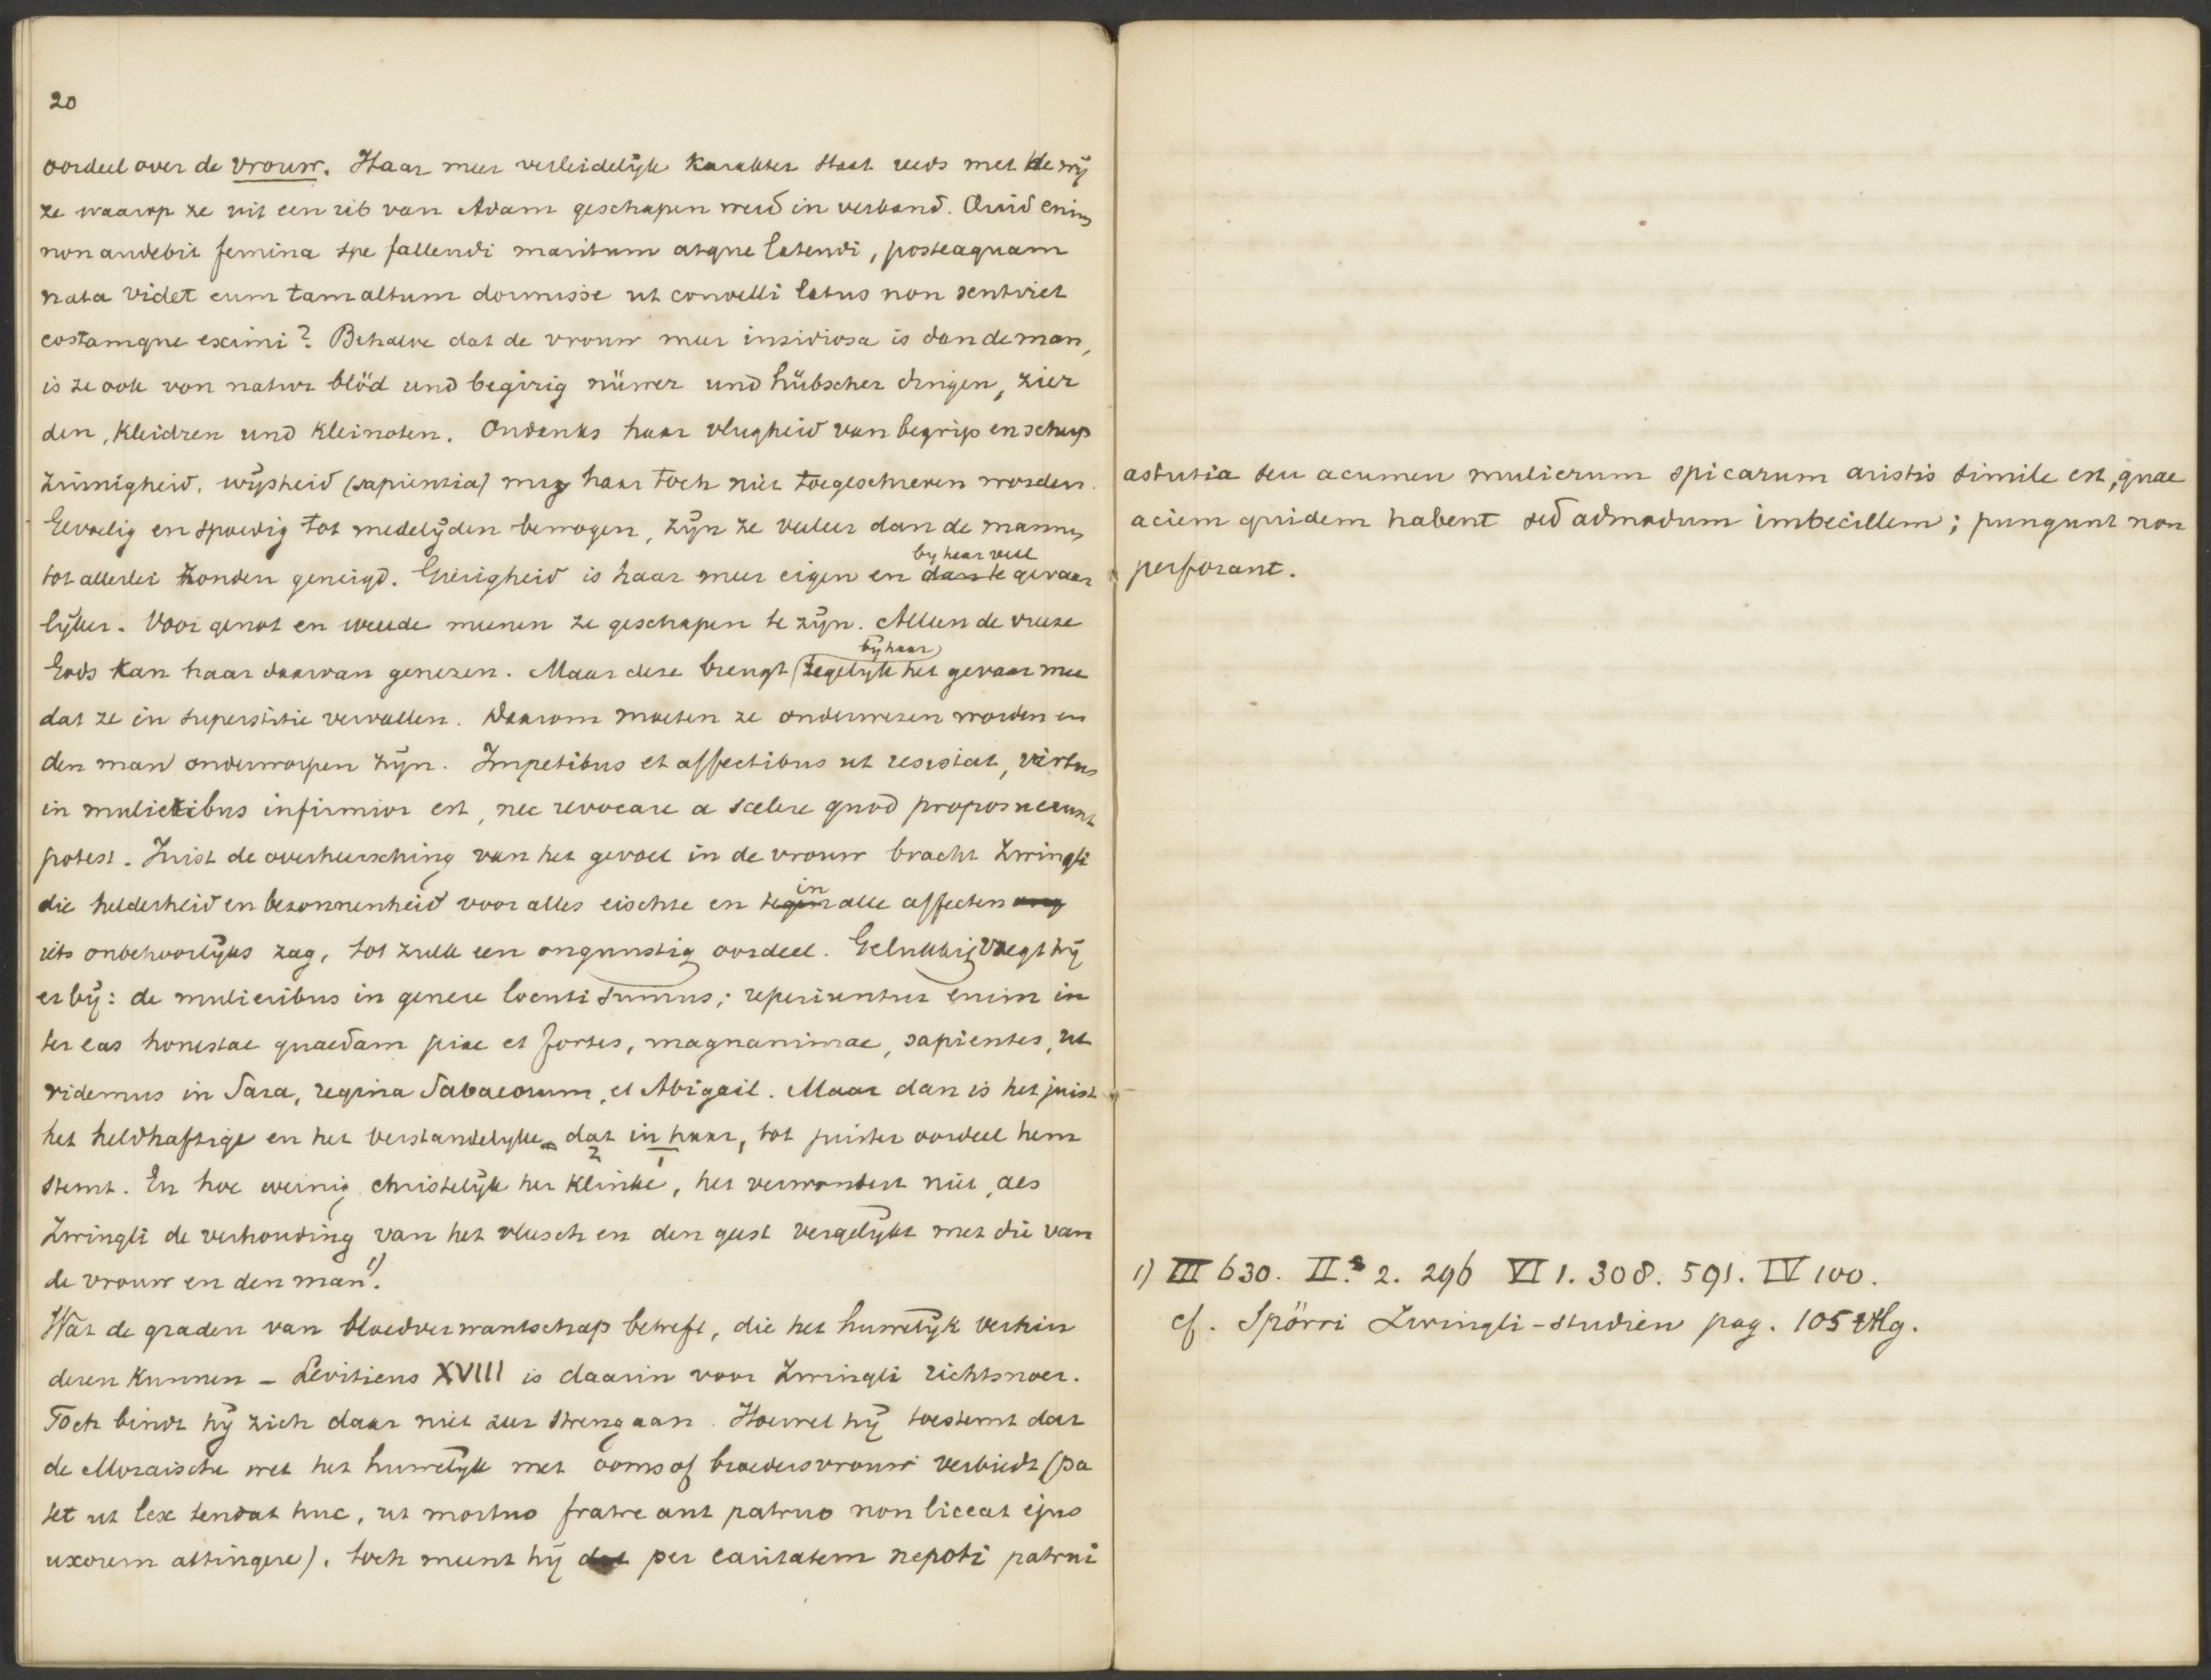 20
oordeel over de vrouw. Haar meer verleidelijk karakter staat reeds met de wij
ze waarop ze uit een rib van Adam geschapen werd in verband. Quid enim
non audebit femina spe fallendi maritum atque latendi, posteaquam
nata videt eum tam altum dormisse ut convelli latus non sentiret
costamque eximi? Behalve dat de vrouw meer insidiosa is dan de man,
is ze ook von natur blöd und begirig nüwer und hübscher dingen, zier
den, kleidren und kleinoten. Ondanks haar vlugheid van begrip en scherp
zinnigheid, wijsheid (sapientia) mag haar toch niet toegeschreven worden.
Gevoelig en spoedig tot medelijden bewogen, zijn ze veeleer dan de mannen
tot allerlei zonden geneigd. Gierigheid is haar meer eigen en by haar veel gevaar
lijker. Voor genot en weelde meenen ze geschapen te zijn. Alleen de vreeze
Gods kan haar daarvan genezen. Maar deze brengt bij haar tegelijk het gevaar mee
dat ze in superstitie vervallen. Daarom moeten ze onderwezen worden en
den man onderworpen zijn. Impetibus et affectibus ut resistat, virtus
in mulieribus infirmior est, nec revocare a scelere quod proposuerunt
potest. Juist de overheersching van het gevoel in de vrouw bracht Zwingli
die helderheid en bezonnenheid voor alles eischte en in alle affecten
iets onbehoorlijks zag, tot zulk een ongunstig oordeel. Gelukkig voegt hij
er bij: de mulieribus in genere locuti sumus; reperiuntur enim in
ter eas honestae quaedam piae et fortes, magnanimae, sapientes, ut
videmus in Sara, regina Sabaeorum, et Abigail. Maar dan is het juist
het heldhaftige en het verstandelijke dat in haar, tot juister oordeel hem
2 1
stemt. En hoe weinig christelijk het klinke, het verwondert niet, als
Zwingli de verhouding van het vleesch en den geest vergelijkt met die van
de vrouw en den man 1).
Wat de graden van bloedverwantschap betreft, die het huwelijk verhin
deren kunnen – Leviticus XVIII is daarin voor Zwingli richtsnoer.
Toch bindt hij zich daar niet zeer streng aan. Hoewel hij toestemt dat
de Mozaische wet het huwelijk met ooms of broedersvrouw verbiedt (pa
tet ut lex tendat huc, ut mortuo fratre aut patruo non liceat ejus
uxorem attingere), toch meent hij dat per caritatem nepoti patrui
astutia seu acumen mulierum spicarum aristis simile est, quae
aciem quidem habent sed admodum imbecillem; pungunt non
perforant.
1) III 630. II. 2. 296 VI 1. 308. 591. IV 100.
cf. Spörri Zwingli-studien pag. 105 vlg.